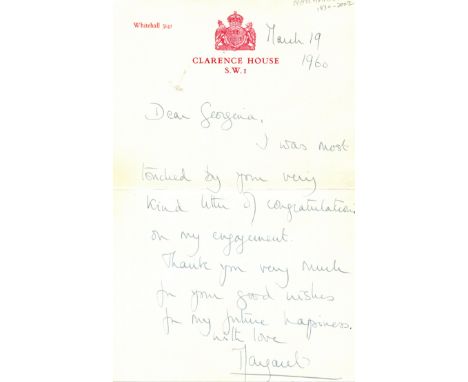 1930-2002
Whitehall 3141
March 19
1960
CLARENCE HOUSE
S.W.1
Dear Georgina,
I was most
touched by your very
kind letter of congratulations
on my engagement.
Thank you very much
for your good wishes
for my future happiness.
with love
Margaret